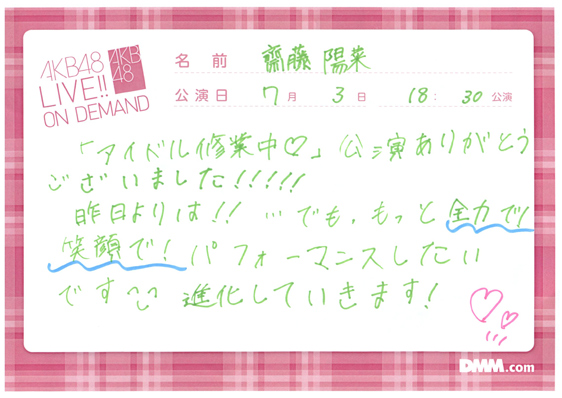 AKB48
LIVE!!
ON DEMAND
AKB
48
名 前 齋藤 陽菜
公演日 7月 3日 18:30公演
「アイドル修業中♡」公演ありがとう
ございました!!!!!
昨日よりは!! …でも、もっと全力で!
笑顔で! パフォーマンスしたい
です 進化していきます!
DMM.com